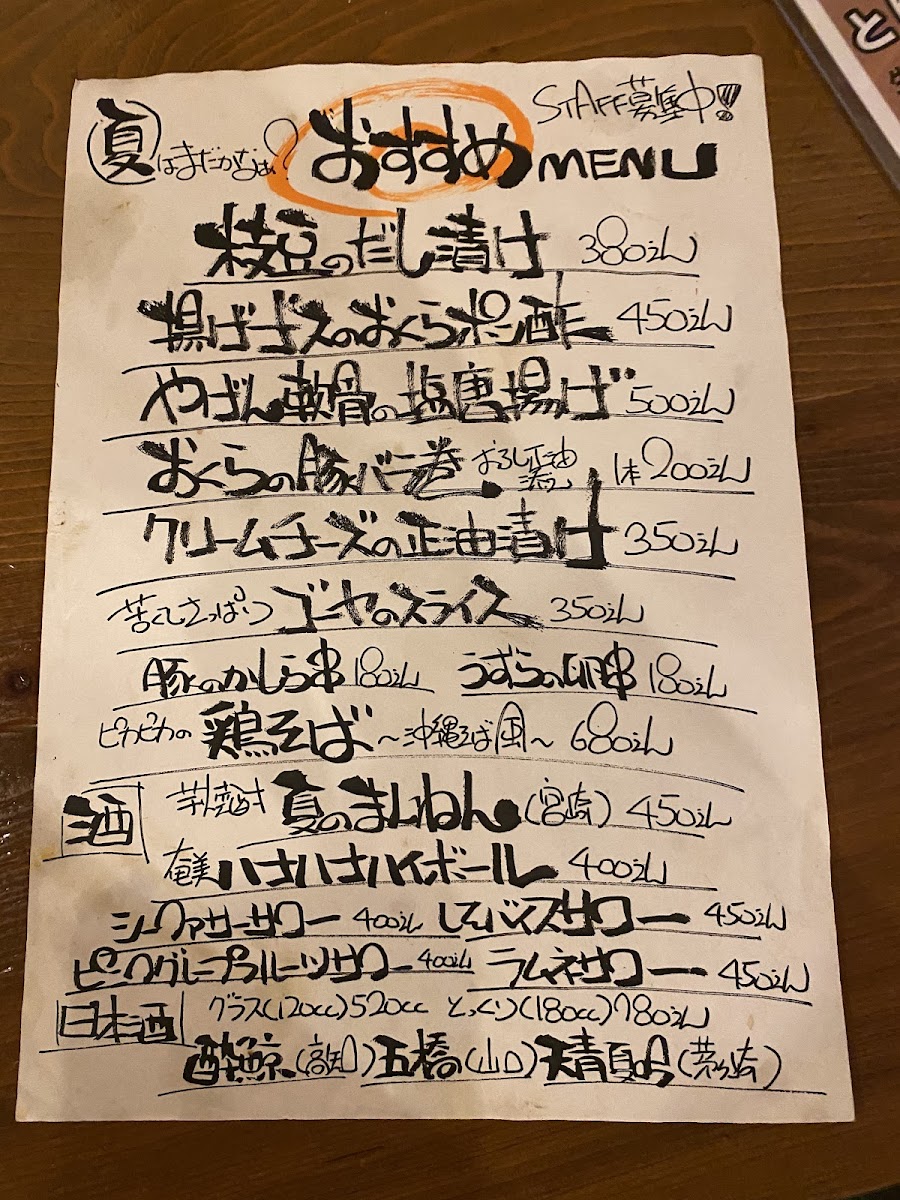 夏はまだかなぁ? おすすめMENU STAFF募集中!!
枝豆のだし漬け 380えん
揚げナスのおくらポン酢 450えん
やげん軟骨の塩唐揚げ 500えん
おくらの豚バラ巻 おろし正油 1本 200えん
クリームチーズの正油漬け 350えん
苦くてさっぱり ゴーヤのスライス 350えん
豚のかしら串 180えん うずらの卵串 180えん
ピカピカの 鶏そば ～沖縄そば風～ 680えん
酒 芋焼酎 夏のまんねん(宮崎) 450えん
奄美 ハナハナハイボール 400えん
シークァサーサワー 400えん バイスサワー 450えん
ピンクグレープフルーツサワー 400えん ラムネサワー 450えん
日本酒 グラス(120cc)520cc とっくり(180cc)780えん
酔鯨(高知) 五橋(山口) 天青夏吟(茅ヶ崎)
と